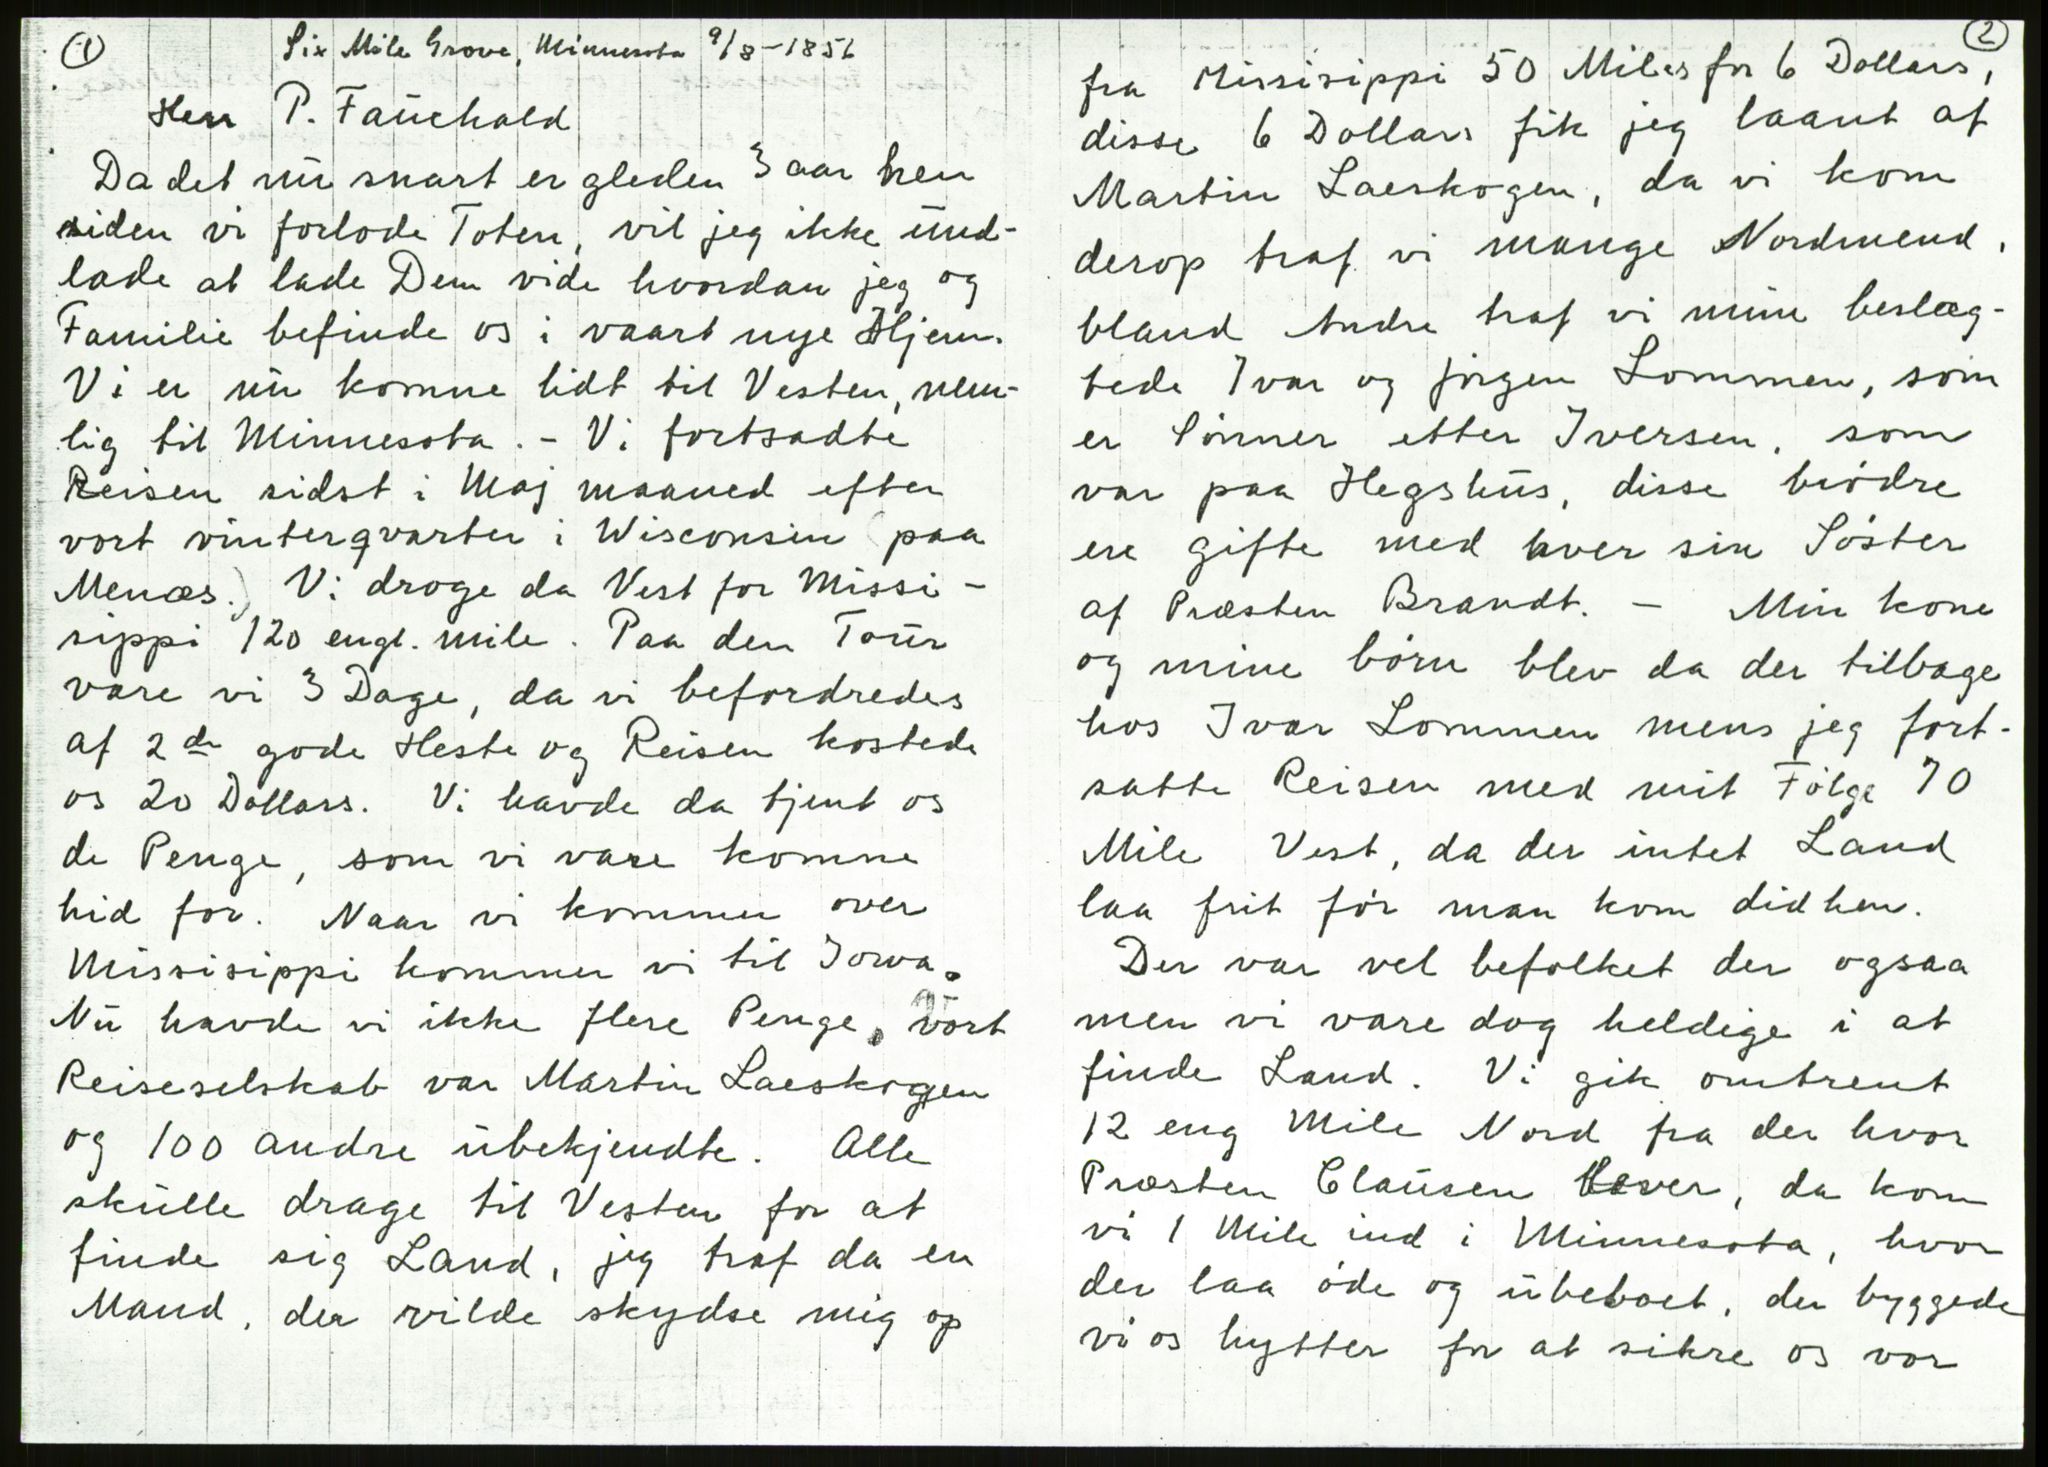 (1)
Six Mile Grove, Minnesota 9/8-1856
Herr P. Fauchald
Da det nu snart er gleden 3 aar hen
siden vi forlode Toten, vil jeg ikke und-
lade at lade Dem vide hvordan jeg og
Familie befinde os i vaart nye Hjem.
Vi er nu komne lidt til Vesten, nem-
lig til Minnesota. - Vi fortsadte
Reisen sidst i Maj maaned efter
vort vinterqvarter i Wisconsin (paa
Menæs.) Vi droge da Vest for Missi-
sippi 120 engl. mile. Paa den Tour
vare vi 3 Dage, da vi befordredes
af 2de gode Heste og Reisen kostede
os 20 Dollars. Vi havde da tjent os
de Penge, som vi vare komne
hid for. Naar vi kommer over
Missisippi kommer vi til Iowa.
Nu havde vi ikke flere Penge, vort
Reiseselskab var Martin Laeskogen
og 100 andre ubekjendte. Alle
skulle drage til Vesten for at
finde sig Land, jeg traf da en
Mand, der vilde skydse mig op
(2)
fra Missisippi 50 Miles for 6 Dollars,
disse 6 Dollars fik jeg laant af
Martin Laeskogen, da vi kom
derop traf vi mange Nordmend,
bland Andre traf vi mine beslæg-
tede Ivar og Jørgen Lommen, som
er Sønner etter Iversen, som
var paa Hegshus, disse brødre
ere gifte med hver sin Søster
af Præsten Brandt. - Min kone
og mine børn blev da der tilbage
hos Ivar Lommen mens jeg fort-
satte Reisen med mit Følge 70
Mile Vest, da der intet Land
laa frit før man kom didhen.
Der var vel befolket der ogsaa
men vi vare dog heldige i at
finde Land. Vi gik omtrent
12 eng Mile Nord fra der hvor
Præsten Clausen lever, da kom
vi 1 Mile ind i Minnesota, hvor
der laa øde og ubeboet, der byggede
vi os hytter for at sikre os vor